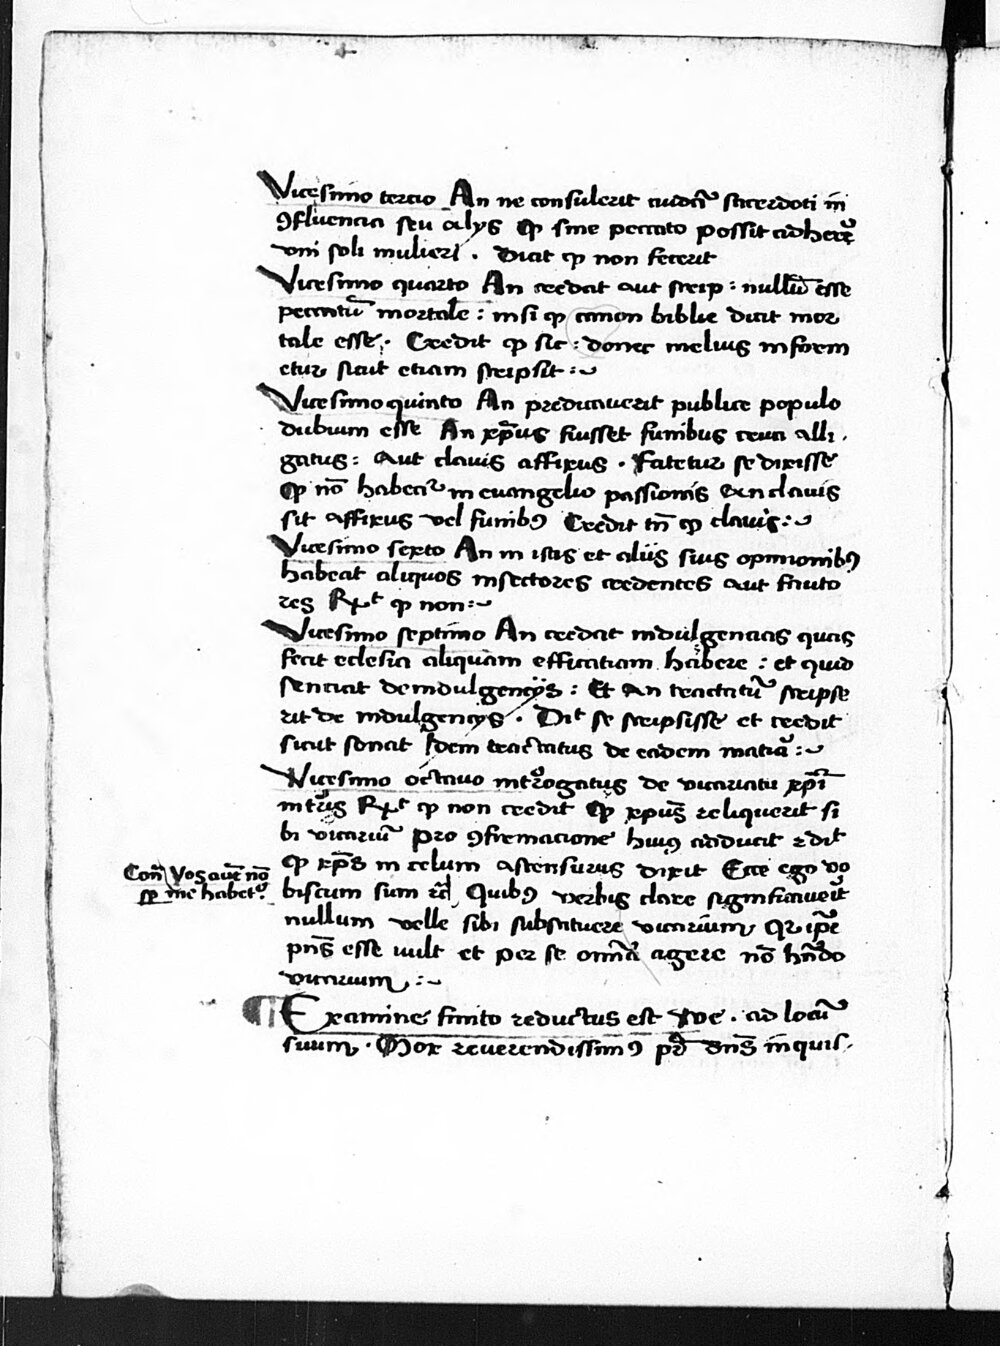 Vicesimo tercio An ne consulerit cuidā sacerdoti in
ꝯfluencia seu alijs ꝙ sine peccato possit adherē
vni soli mulieri . Dicit ꝙ non fecerit
Vicesimo quarto An credat aut scrip : nullū esse
peccatū mortale : nisi ꝙ canon biblie dicit mor
tale esse . Credit ꝙ sic : donec melius inform
etur sicut etiam scripsit :~
Vicesimo quinto An predicauerit publice populo
dubium esse An xp̄us fuisset funibus cruci alli.
gatus : Aut clauis affixus . Fatetur se dixisse
ꝙ nō habeat᷑ in euangelio passionis An clauis
sit affixus vel funibꝯ Credit tn̄ ꝙ clauis :~
Vicesimo sexto An in istis et aliis suis opinionibꝯ
habeat aliquos insectores credentes aut fauto
res Rx̄t ꝙ non :~
Vicesimo septimo An credat indulgencias quas
fecit eclesia aliquam efficatiam habere : et quid
senciat de indulgencijs : Et An tractatū scripse
rit de indulgencijs . Dit se scripsisse et credit
sicut sonat Idem tractatus de eadem matiā :~
Vicesimo octauo int̄rogatus de vicariatu xp̄i
in t̄ris Rx̄t ꝙ non credit ꝙ xpūs reliquerit si
bi vicariū pro ꝯfirmacione huiꝯ adducit
ꝙ xp̄s in celum astensurus dixit Ecce ego vo
biscum sum rc̄ Quibꝯ verbis clare significauerit
nullum velle sibi substituere vicarium, Qr ip̄e
pn̄s esse uult et per se omīa agere nō hn̄do
vicarium :~
Con̄ Vos aut̄ nō
sp me habet᷑.
¶ Examine finito reductus est Ioe . ad locū
suum . Mox reuerendissimꝯ pr̄ dn̄s inquis.